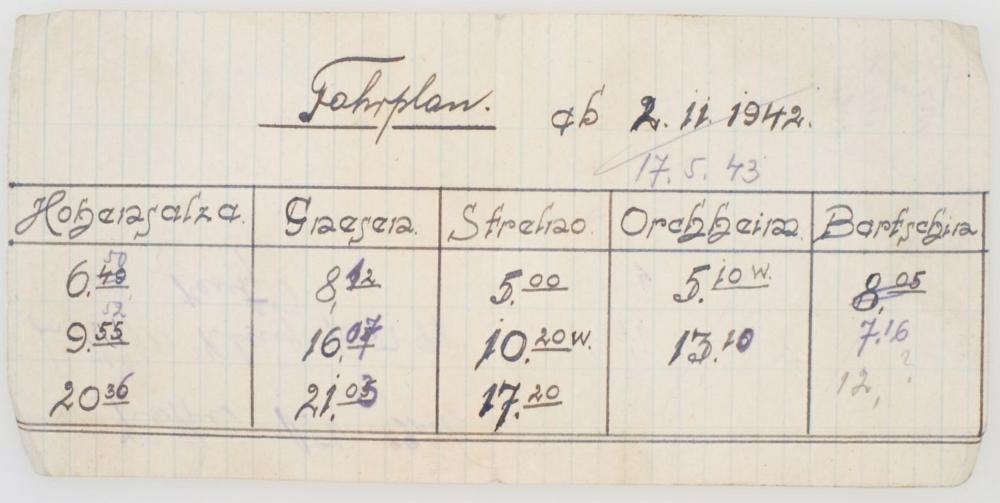 Fahrplan. ab 2. 11. 1942.
17. 5. 43
Hohensalza. Gnesen. Strelno. Orchheim. Bartschin.
50
6.40 8,12 5.00 5.10 W. 8,05
52
9.55 16,07 10.20 W. 13.10 7.16
20 36 21,03 17.20 12, ?